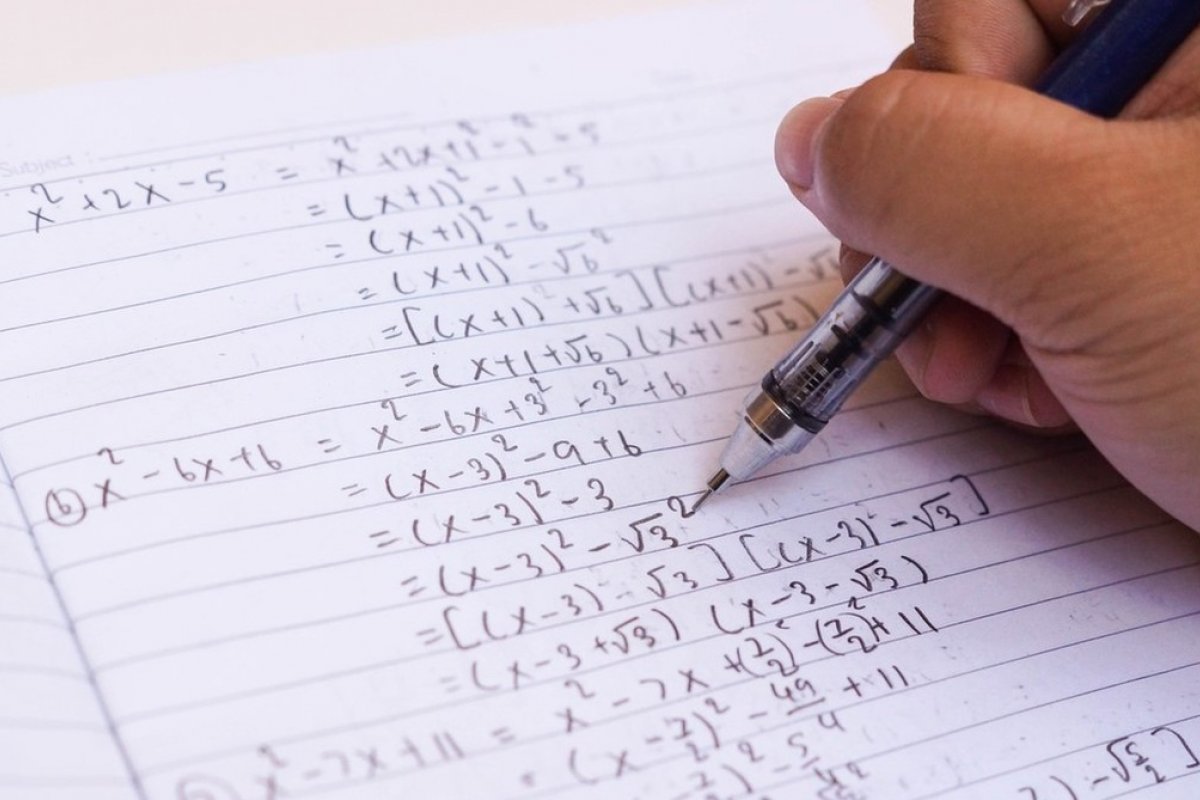 Subject :
x² + 2x - 5 = x² + 2x + 1² - 1² - 5
= (x+1)² - 1 - 5
= (x+1)² - 6
= (x+1)² - √6²
= [(x+1)² + √6] [(x+1)² - √6
= (x+1+√6) (x+1-√6)
(b) x² - 6x + 6 = x² - 6x + 3² - 3² + 6
= (x-3)² - 9 + 6
= (x-3)² - 3
= (x-3)² - √3²
= [(x-3) - √3] [(x-3)² - √3]
= (x-3+√3) (x-3-√3)
x² - 7x + 11 = x² - 7x + (7/2)² - (7/2)² + 11
= (x - 7/2)² - 49/4 + 11
7/2)² - 5/4
) - √5/2]